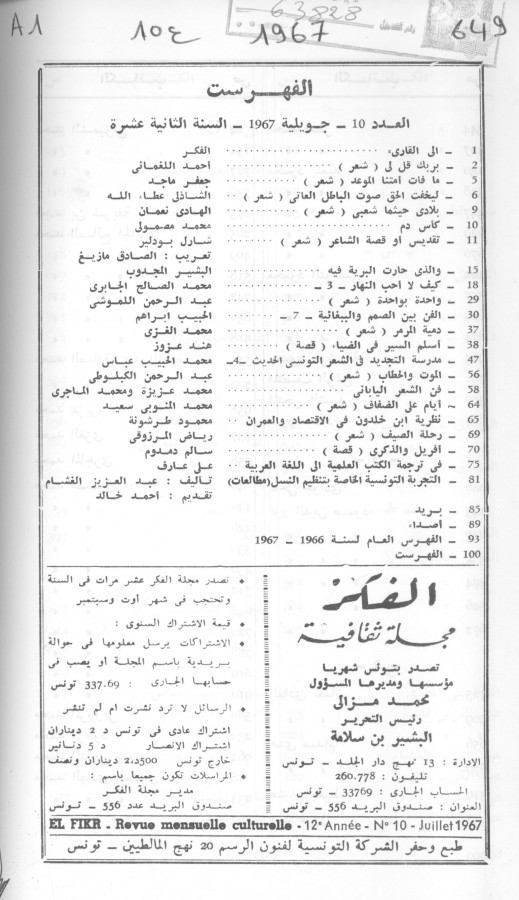 63828
A1
10ع
1967
649
الفهـرست
العدد 10 ـ جـويلية 1967 ـ السنة الثانية عشرة
1 ـ الى القارىء ........ الفكر
2 ـ بربك قل لى ( شعر ) ........ احمد اللغمانى
5 ـ ما فات امتنا الموعد ( شعر ) ........ جعفر ماجد
6 ـ ليخفت الحق صوت الباطل العاتى ( شعر ) ........ الشاذلى عطاء الله
9 ـ بلادى حيثما شعبى ( شعر ) ........ الهادى نعمان
10 ـ كأس دم ........ محمد مصمولى
11 ـ تقديس أو قصة الشاعر ( شعر ) ........ شارل بودلير
تعريب : الصادق مازيغ
15 ـ والذى حارت البرية فيه ........ البشير المجدوب
18 ـ كيف لا احب النهار ـ 3 ـ ........ محمد الصالح الجابرى
29 ـ واحدة بواحدة ( شعر ) ........ عبد الرحمن اللموشى
30 ـ الفن بين الصمم والببغائية ـ 7 ـ ........ الحبيب ابراهم
37 ـ دمية المرمر ( شعر ) ........ محمد الغزى
38 ـ أسلم السير فى الضياء ( قصة ) ........ هند عزوز
47 ـ مدرسة التجديد فى الشعر التونسى الحديث ـ4ـ محمد الحبيب عباس
56 ـ الموت والحطاب ( شعر ) ........ عبد الرحمن الكبلوطى
58 ـ فن الشعر اليابانى ........ محمد عزيزة ومحمد الماجرى
64 ـ أيام على الضفاف ( شعر ) ........ محمد المنوبى سعيد
65 ـ نظرية ابن خلدون فى الاقتصاد والعمران ........ محمود طرشونة
69 ـ رحلة الصيف ( شعر ) ........ رياض المرزوقى
70 ـ أفريل والذكرى ( قصة ) ........ سالم دمدوم
75 ـ فى ترجمة الكتب العلمية الى اللغة العربية ........ على عارف
81 ـ التجربة التونسية الخاصة بتنظيم النسل (مطالعات) تأليف : عبد العزيز الغشام
تقديم : احمد خالد
85 ـ بريد
89 ـ أصداء
93 ـ الفهرس العام لسنة 1966 ـ 1967
100 ـ الفهرست
الفكر
مجلة ثقافية
تصدر بتونس شهريا
مؤسسها ومديرها المسؤول
محمد مزالى
رئيس التحرير
البشير بن سلامة
الادارة : 13 نهج دار الجلد ـ تونس
تليفون : 260.778
الحساب الجارى : 33769 ـ تونس
العنوان : صندوق البريد 556 ـ تونس
• تصدر مجلة الفكر عشر مرات فى السنة
وتحتجب فى شهر أوت وسبتمبر
• قيمة الاشتراك السنوى :
الاشتراكات يرسل معلومها فى حوالة
بريدية باسم المجلة أو يصب فى
حسابها الجارى : 337.69 تونس
• الرسائل لا ترد نشرت ام لم تنشر
اشتراك عادى فى تونس د 2 ديناران
اشتراك الانصار د 5 دنانير
خارج تونس 2،500د ديناران ونصف
• المراسلات تكون جميعا باسم :
مدير مجلة الفكر
صندوق البريد عدد 556 ـ تونس
EL FIKR - Revue mensuelle culturelle - 12e Année - No 10 - Juillet 1967
طبع وحفر الشركة التونسية لفنون الرسم 20 نهج المالطيين ـ تونس